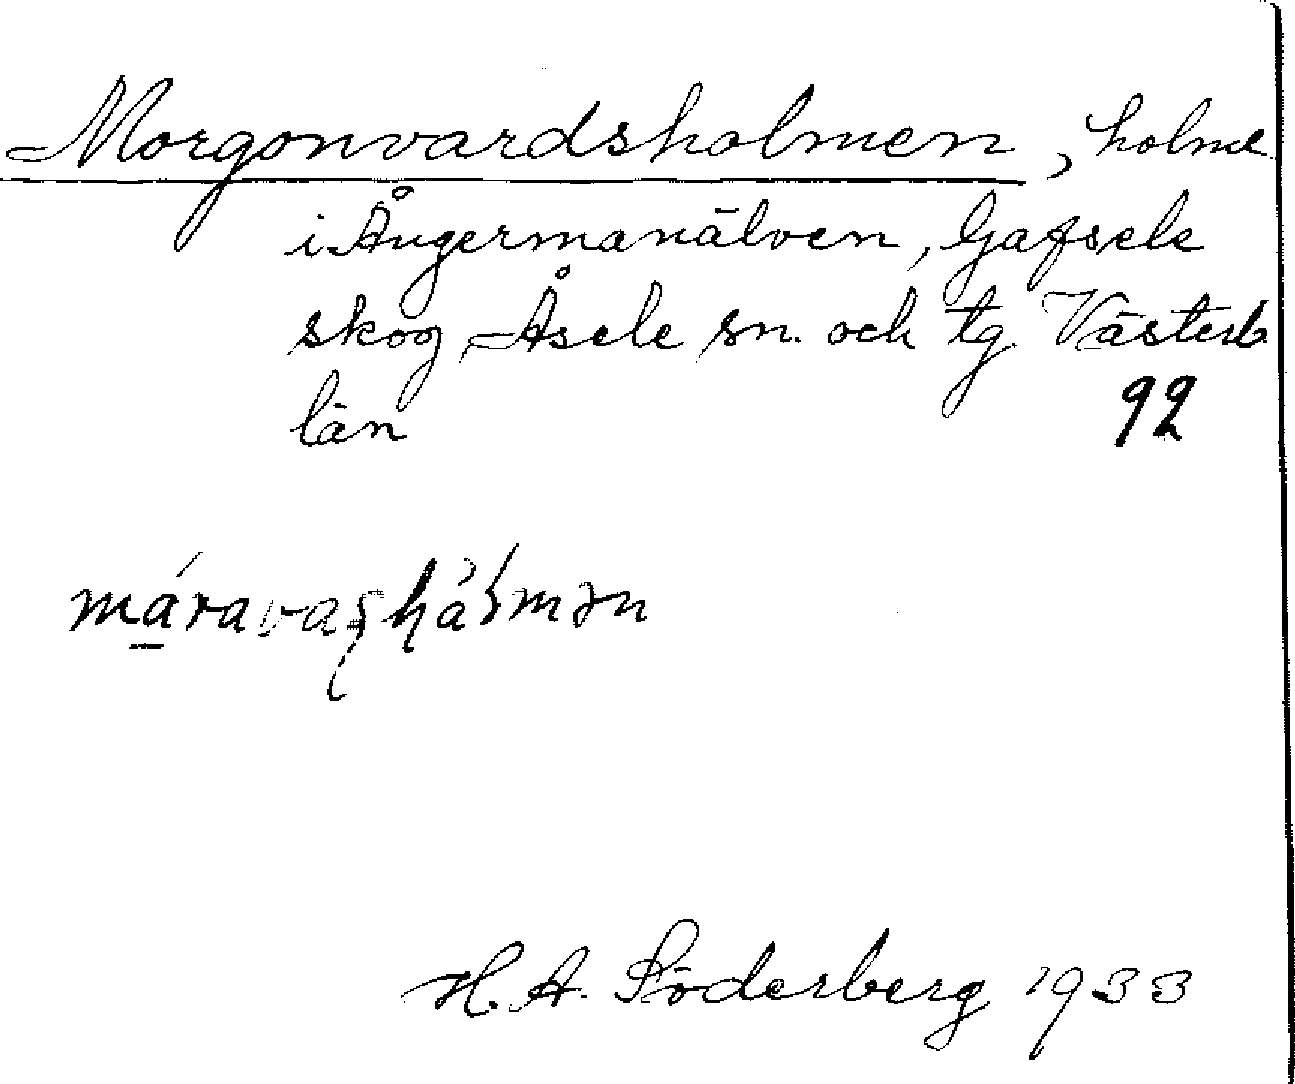 Morgonvardsholmen, holme
i Ångermanälven, Gafsele
skog, Åsele sn. och tg Västerb.
län 92
H. A. Söderberg 1933